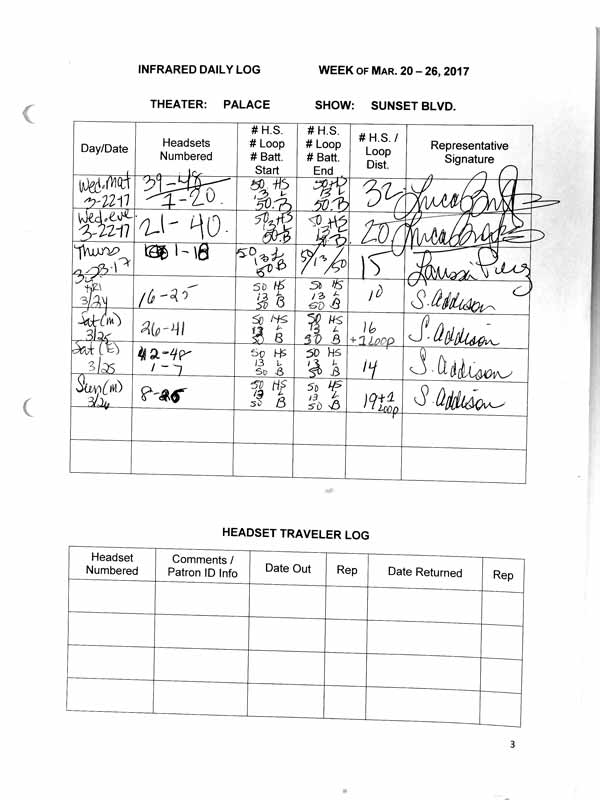 INFRARED DAILY LOG WEEK OF MAR. 20 – 26, 2017
THEATER: PALACE SHOW: SUNSET BLVD.
Day/Date
Headsets
Numbered
# H.S.
# Loop
# Batt.
Start
# H.S.
# Loop
# Batt.
End
# H.S. /
Loop
Dist.
Representative
Signature
Wed. Mat
3-22-17
39-48
7-20
50 HS
13 L
50 B
50 HS
13 L
50 B
32
Wed. eve
3-22-17
21-40
50 HS
13 L
50 B
50 HS
13 L
50 B
20
Thurs
3-23-17
1-18
50
13 L
50 B
50/13/50
15
FRI
3/24
16-25
50 HS
13 L
50 B
50 HS
13 L
50 B
10
S. Addison
Sat (m)
3/25
26-41
50 HS
13 L
50 B
50 HS
13 L
50 B
16
+1 Loop
S. Addison
Sat (E)
3/25
42-48
1-7
50 HS
13 L
50 B
50 HS
13 L
50 B
14
S. Addison
Sun (m)
3/26
8-26
50 HS
13 L
50 B
50 HS
13 L
50 B
19+1
Loop
S. Addison
HEADSET TRAVELER LOG
Headset
Numbered
Comments /
Patron ID Info
Date Out
Rep
Date Returned
Rep
3